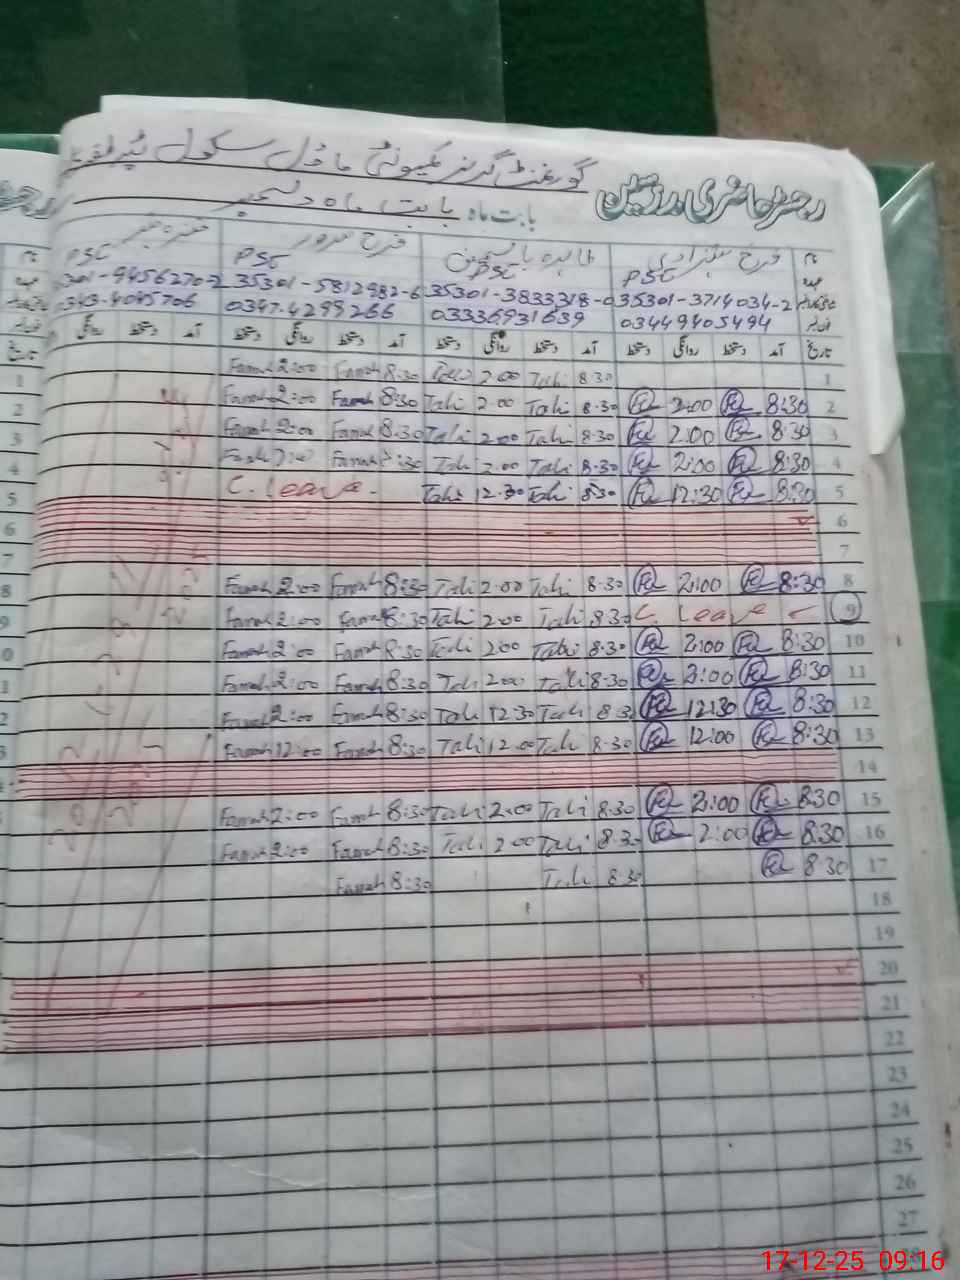 گورنمنٹ گرلز کمیونٹی ماڈل سکول
رجسٹر حاضری مدرسین بابت ماہ بابت ماہ دسمبر
نام فرح شہزادی طاہرہ یاسمین فرح سرور
عہدہ PSC PSC PSC PSC
35301-3714034-2 35301-3833318-0 35301-5812982-6 301-9456270-2
03449405494 03336931639 0347-4299266 0343-4045706
تاریخ آمد دستخط روانگی دستخط آمد دستخط روانگی دستخط آمد دستخط روانگی دستخط آمد دستخط روانگی
1 Farrah 2:00 Farrah 8:30 Tahi 2.00 Tahi 8.30 1
2 Farrah 2:00 Farrah 8:30 Tahi 2.00 Tahi 8.30 2:00 8:30 2
3 Farrah 2:00 Farrah 8:30 Tahi 2.00 Tahi 8.30 2:00 8:30 3
4 Farrah 2:00 Farrah 8:30 Tahi 2.00 Tahi 8.30 2:00 8:30 4
5 C. leave Tahi 12.30 Tahi 8.30 12:30 8:30 5
6 6
7 7
8 Farrah 2:00 Farrah 8:30 Tahi 2.00 Tahi 8.30 2:00 8:30 8
9 Farrah 2:00 Farrah 8:30 Tahi 2.00 Tahi 8.30 C. Leave 9
0 Farrah 2:00 Farrah 8:30 Tahi 2.00 Tahi 8.30 2:00 8:30 10
1 Farrah 2:00 Farrah 8:30 Tahi 2.00 Tahi 8.30 2:00 8:30 11
2 Farrah 2:00 Farrah 8:30 Tahi 12.30 Tahi 8.30 12:30 8:30 12
3 Farrah 12:00 Farrah 8:30 Tahi 12.00 Tahi 8.30 12:00 8:30 13
14
Farrah 2:00 Farrah 8:30 Tahi 2.00 Tahi 8.30 2:00 8:30 15
Farrah 2:00 Farrah 8:30 Tahi 2.00 Tahi 8.30 2:00 8:30 16
Farrah 8:30 Tahi 8.30 8:30 17
18
19
20
21
22
23
24
25
26
27
17-12-25 09:16